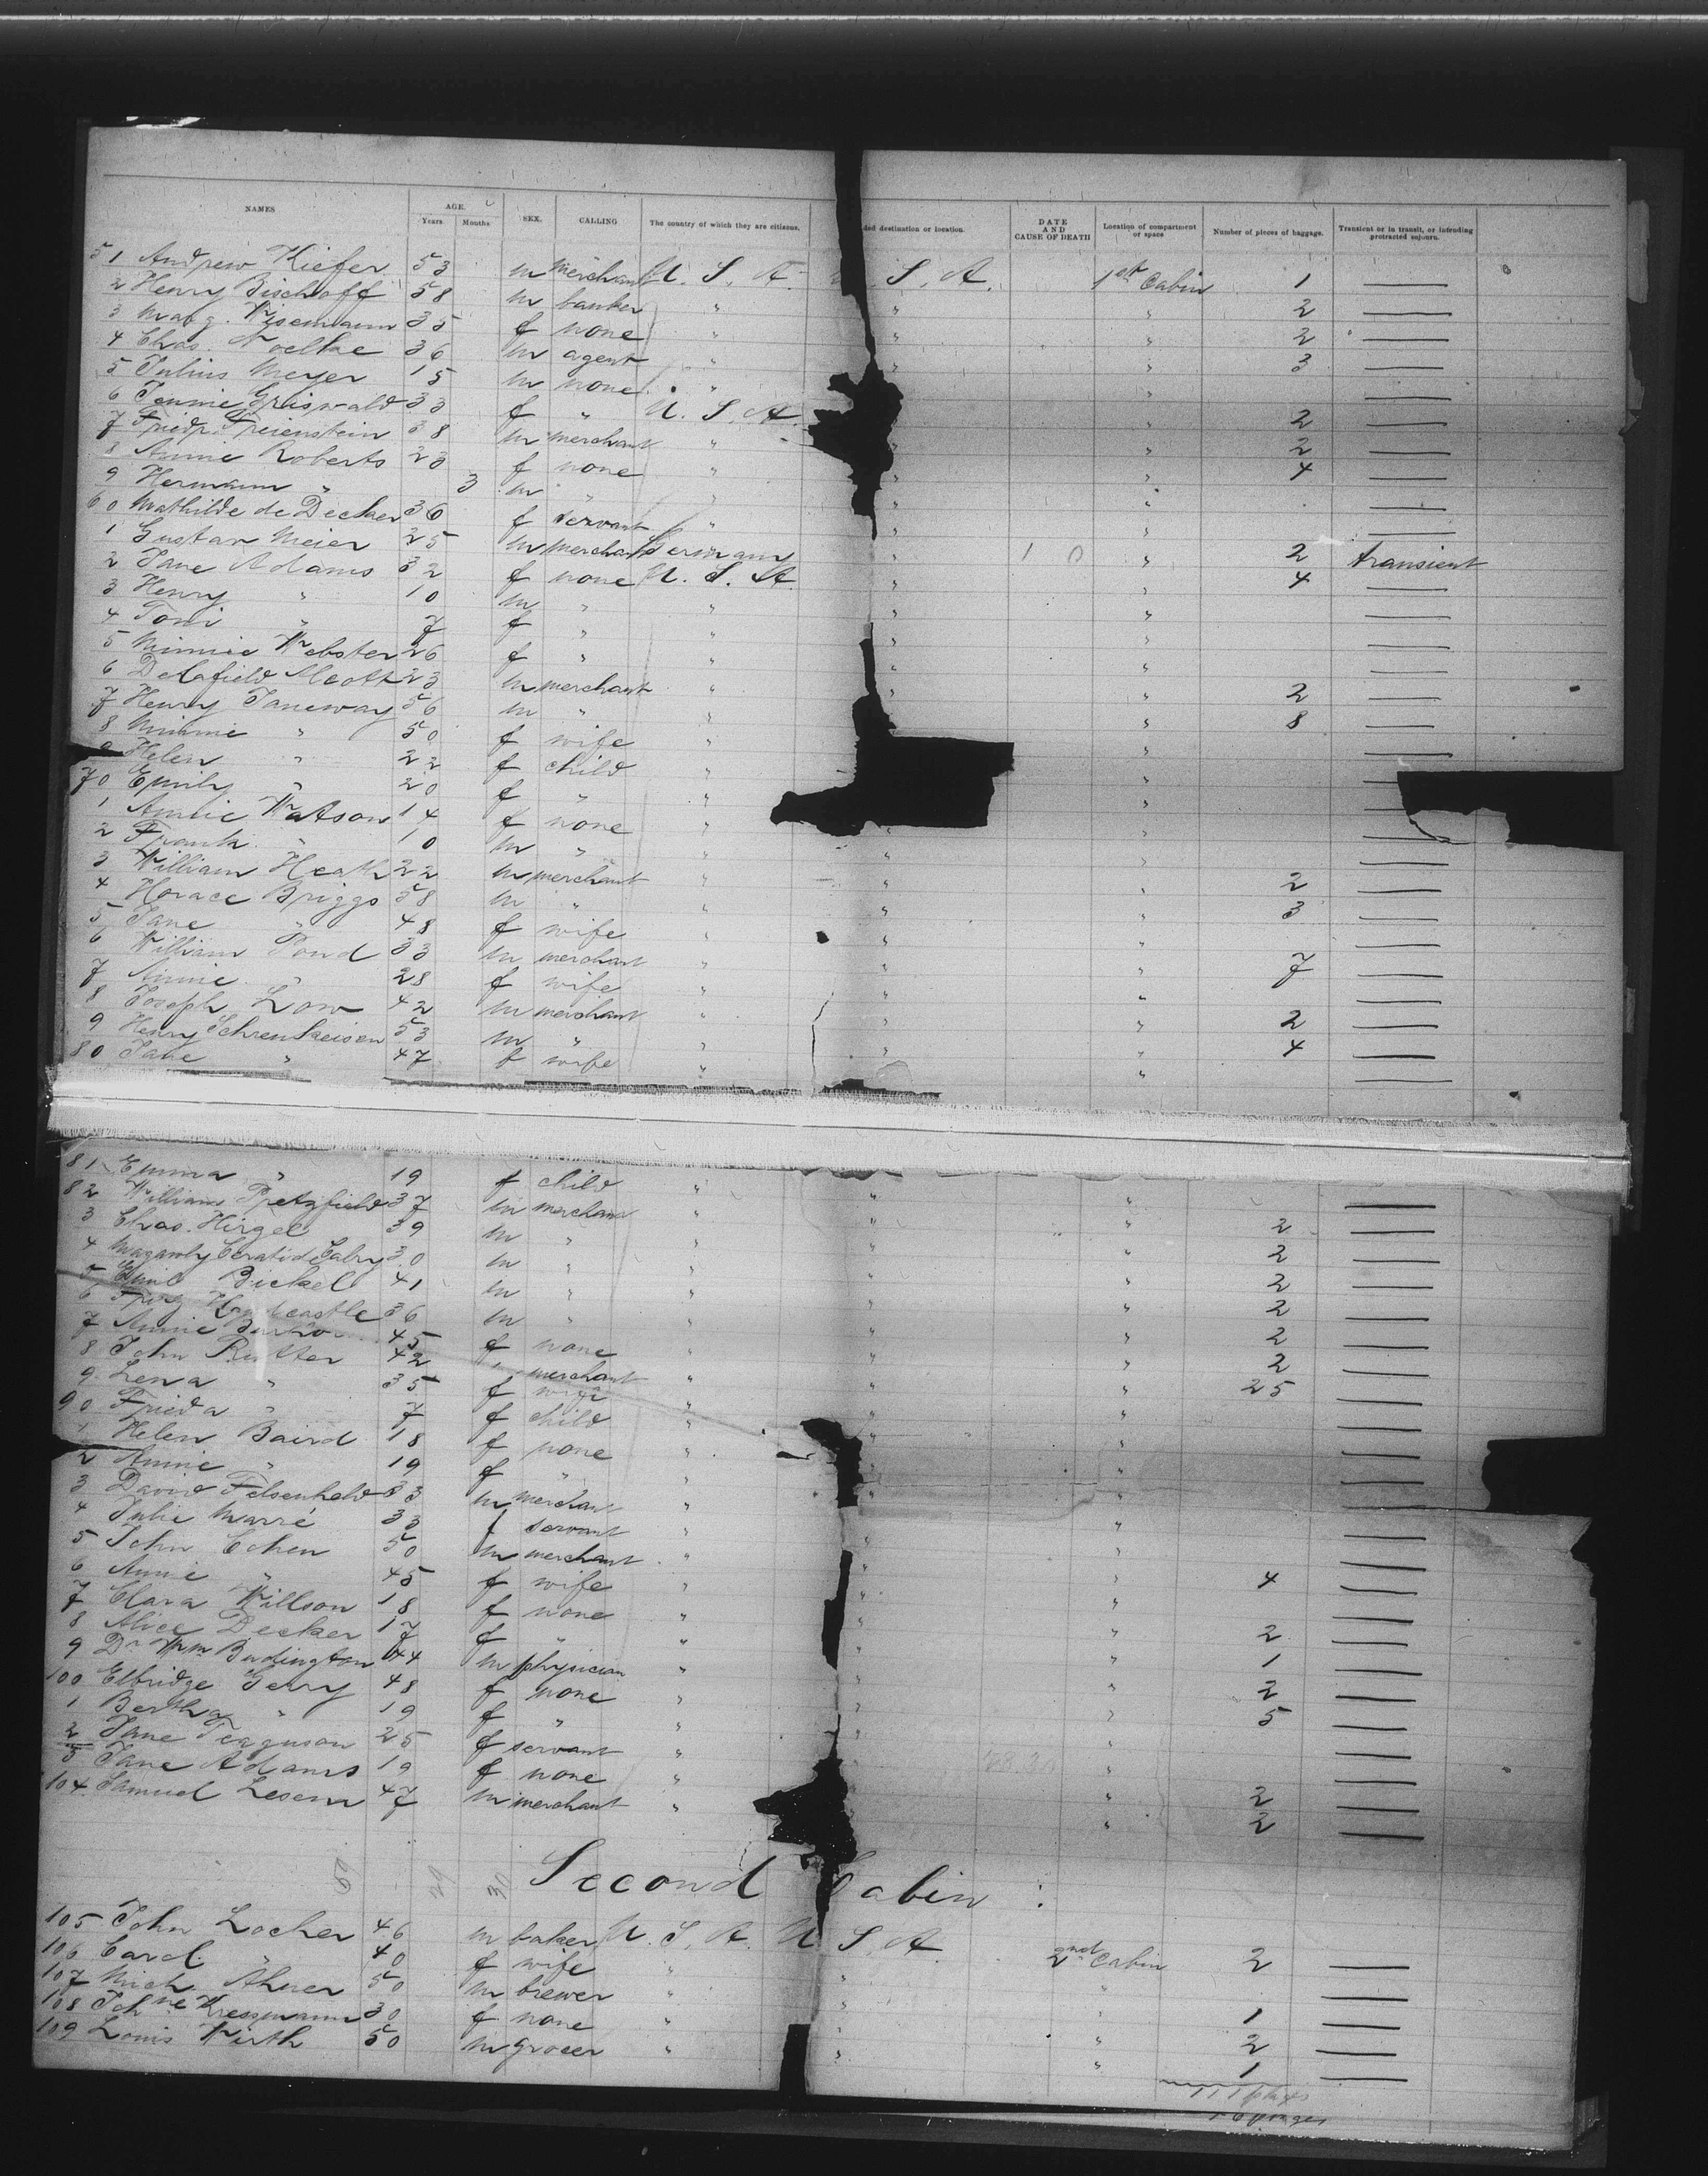 NAMES AGE. Years Months SEX. CALLING The country of which they are citizens. ded destination or location. DATE AND CAUSE OF DEATH Location of compartment or space Number of pieces of baggage. Transient or in transit, or intending protracted sojourn.
51 Andrew Kiefer 53 m merchant U. S. A. S. A. 1st Cabin 1 —
2 Henry Bischoff 58 m banker " " " 2 —
3 Marg. Wisemann 35 f none " " " 2 —
4 Chas. Noelke 36 m agent " " " 3 —
5 Julius Meyer 15 m none " " —
6 Jennie Griswald 33 f " U. S. A. " " 2 —
7 Friedr. Freienstein 38 m merchant " " " 2 —
8 Annie Roberts 23 f none " " " 4 —
9 Hermann " 3 m " " " " —
60 Mathilde de Decker 36 f servant " " " —
1 Gustav Meier 25 m merchant Germany " 10 " 2 transient
2 Jane Adams 32 f none U. S. A. " " 4 —
3 Henry " 10 m " " " " —
4 Toni " 7 f " " " " —
5 Minnie Webster 26 f " " " " —
6 Delafield 23 m merchant " " " 2 —
7 Henry Janeway 56 m " " " " 8 —
8 Minnie " 50 f wife " " —
9 Helen " 22 f child " " —
70 Emily " 20 f " " "
1 Watson 14 f none " " —
2 Frank " 10 m " " " " —
3 William Heath 22 m merchant " " " 2 —
4 Horace Briggs 58 m " " " " 3 —
5 Jane " 48 f wife " " " —
6 William Pond 33 m merchant " " " 7 —
7 Annie " 28 f wife " " " —
8 Joseph Low 42 m merchant " " " 2 —
9 Henry Schrenkeisen 53 m " " " " 4 —
80 Jane " 47 f wife " " " —
81 Emma " 19 f child " " " —
82 William Pretzfield 37 m merchand " " " 2 —
3 Chas. Hirgel 39 m " " " " 2 —
4 30 m " " " " 2 —
5 Emil Bickel 41 m " " " " 2 —
6 Hardcastle 36 m " " " " 2 —
7 Annie 45 f none " " " 2 —
8 John Rutter 42 " merchant " " " 25 —
9 Lena " 35 f wife " " " —
90 Frieda " 7 f child " " " —
1 Helen Baird 18 f none " " " —
2 Annie " 19 f " " " " —
3 David Felsenheld 53 m merchan " " " —
4 Julie Marré 33 f servant " " —
5 John Cohen 50 m merchant " " " 4 —
6 Annie " 45 f wife " " " —
7 Clara Willson 18 f none " " " 2 —
8 Alice Decker 17 f " " " " 1 —
9 Dr Wm Budington 44 m physician " " " 2 —
100 Elbridge Gerry 48 f none " " " 5 —
1 Bertha " 19 f " " " " —
2 Jane Ferguson 25 f servant " " " —
3 Jane Adams 19 f none " " " 2 —
104 Samuel Lesem 47 m merchant " " " 2 —
Second Cabin :
105 John Locher 46 m baker U. S. A. U S. A. 2nd Cabin 2 —
106 Carol. " 40 f wife " " " —
107 Mich. Ahner 50 m brewer " " " 1 —
108 Johne Kressmann 30 f none " " " 2 —
109 Louis Wirth 50 m grocer " " " 1 —